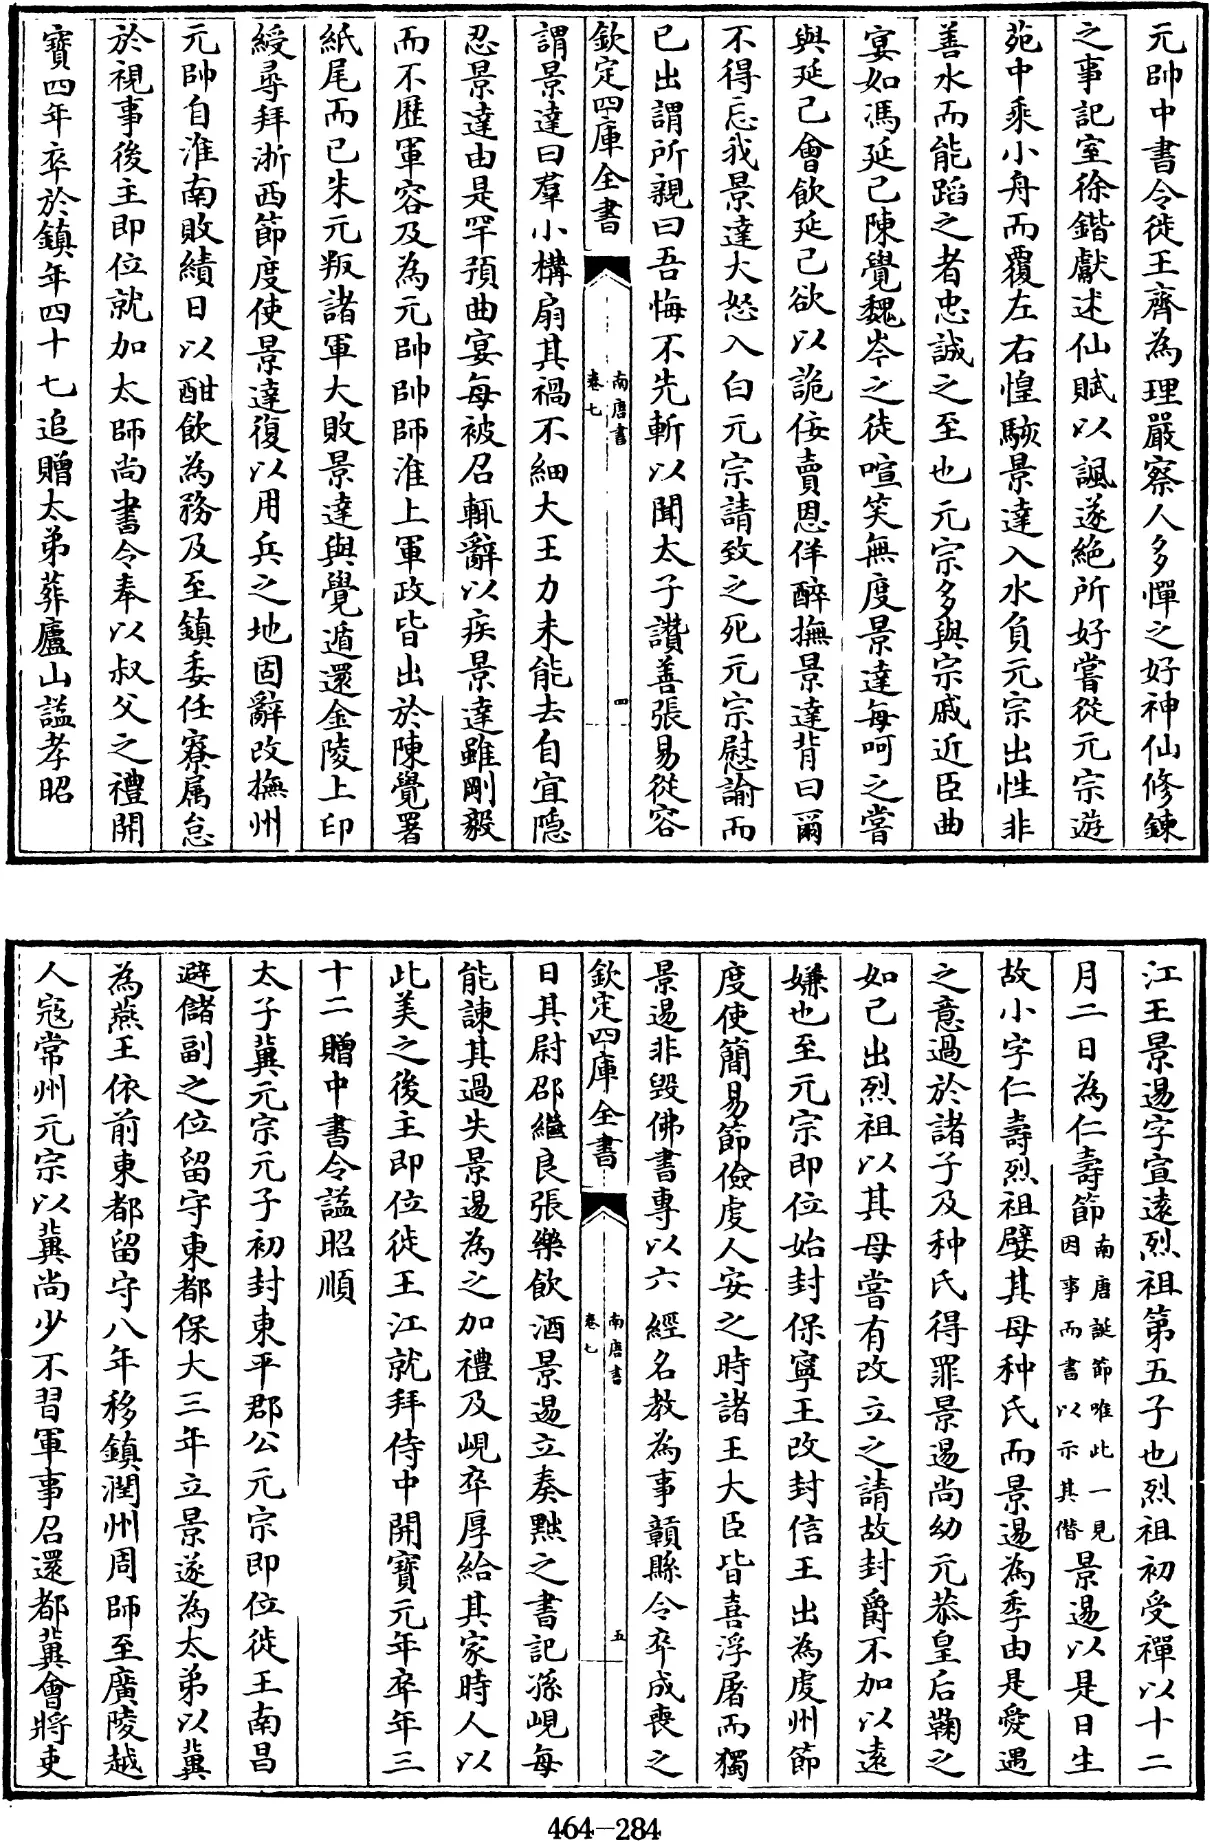 元帥中書令徙王齊為理嚴察人多憚之好神仙修鍊
之事記室徐鍇獻述仙賦以諷遂絶所好嘗從元宗遊
苑中乘小舟而覆左右惶駭景達入水負元宗出性非
善水而能蹈之者忠誠之至也元宗多與宗戚近臣曲
宴如馮延己陳覺魏岑之徒喧笑無度景達每呵之嘗
與延己會飲延己欲以詭佞賣恩佯醉撫景達背曰爾
不得忘我景達大怒入白元宗請致之死元宗慰諭而
已出謂所親曰吾悔不先斬以聞太子讚善張易從容
欽定四庫全書
南唐書
卷七
四
謂景達曰羣小構扇其禍不細大王力未能去自宜隱
忍景達由是罕預曲宴每被召輒辭以疾景達雖剛毅
而不歷軍容及為元帥帥師淮上軍政皆出於陳覺署
紙尾而已朱元叛諸軍大敗景達與覺遁還金陵上印
綬尋拜浙西節度使景達復以用兵之地固辭改撫州
元帥自淮南敗績日以酣飲為務及至鎮委任寮属怠
於視事後主即位就加太師尚書令奉以叔父之禮開
寶四年卒於鎮年四十七追贈太弟葬廬山謚孝昭
江王景逷字宣逺烈祖第五子也烈祖初受禪以十二
月二日為仁壽節南唐誕節唯此一見因事而書以示其僭景逷以是日生
故小字仁壽烈祖嬖其母种氏而景逷為季由是愛遇
之意過於諸子及种氏得罪景逷尚幼元恭皇后鞠之
如己出烈祖以其母嘗有改立之請故封爵不加以逺
嫌也至元宗即位始封保寧王改封信王出為虔州節
度使簡易節儉虔人安之時諸王大臣皆喜浮屠而獨
景逷非毀佛書專以六經名教為事贛縣令卒成喪之
欽定四庫全書
南唐書
卷七
五
日其尉邵繼良張樂飲酒景逷立奏黜之書記孫峴每
能諌其過失景逷為之加禮及峴卒厚給其家時人以
此美之後主即位徙王江就拜侍中開寶元年卒年三
十二贈中書令謚昭順
太子冀元宗元子初封東平郡公元宗即位徙王南昌
避儲副之位留守東都保大三年立景遂為太弟以冀
為燕王依前東都留守八年移鎮潤州周師至廣陵越
人寇常州元宗以冀尚少不習軍事召還都冀會將吏
464-284